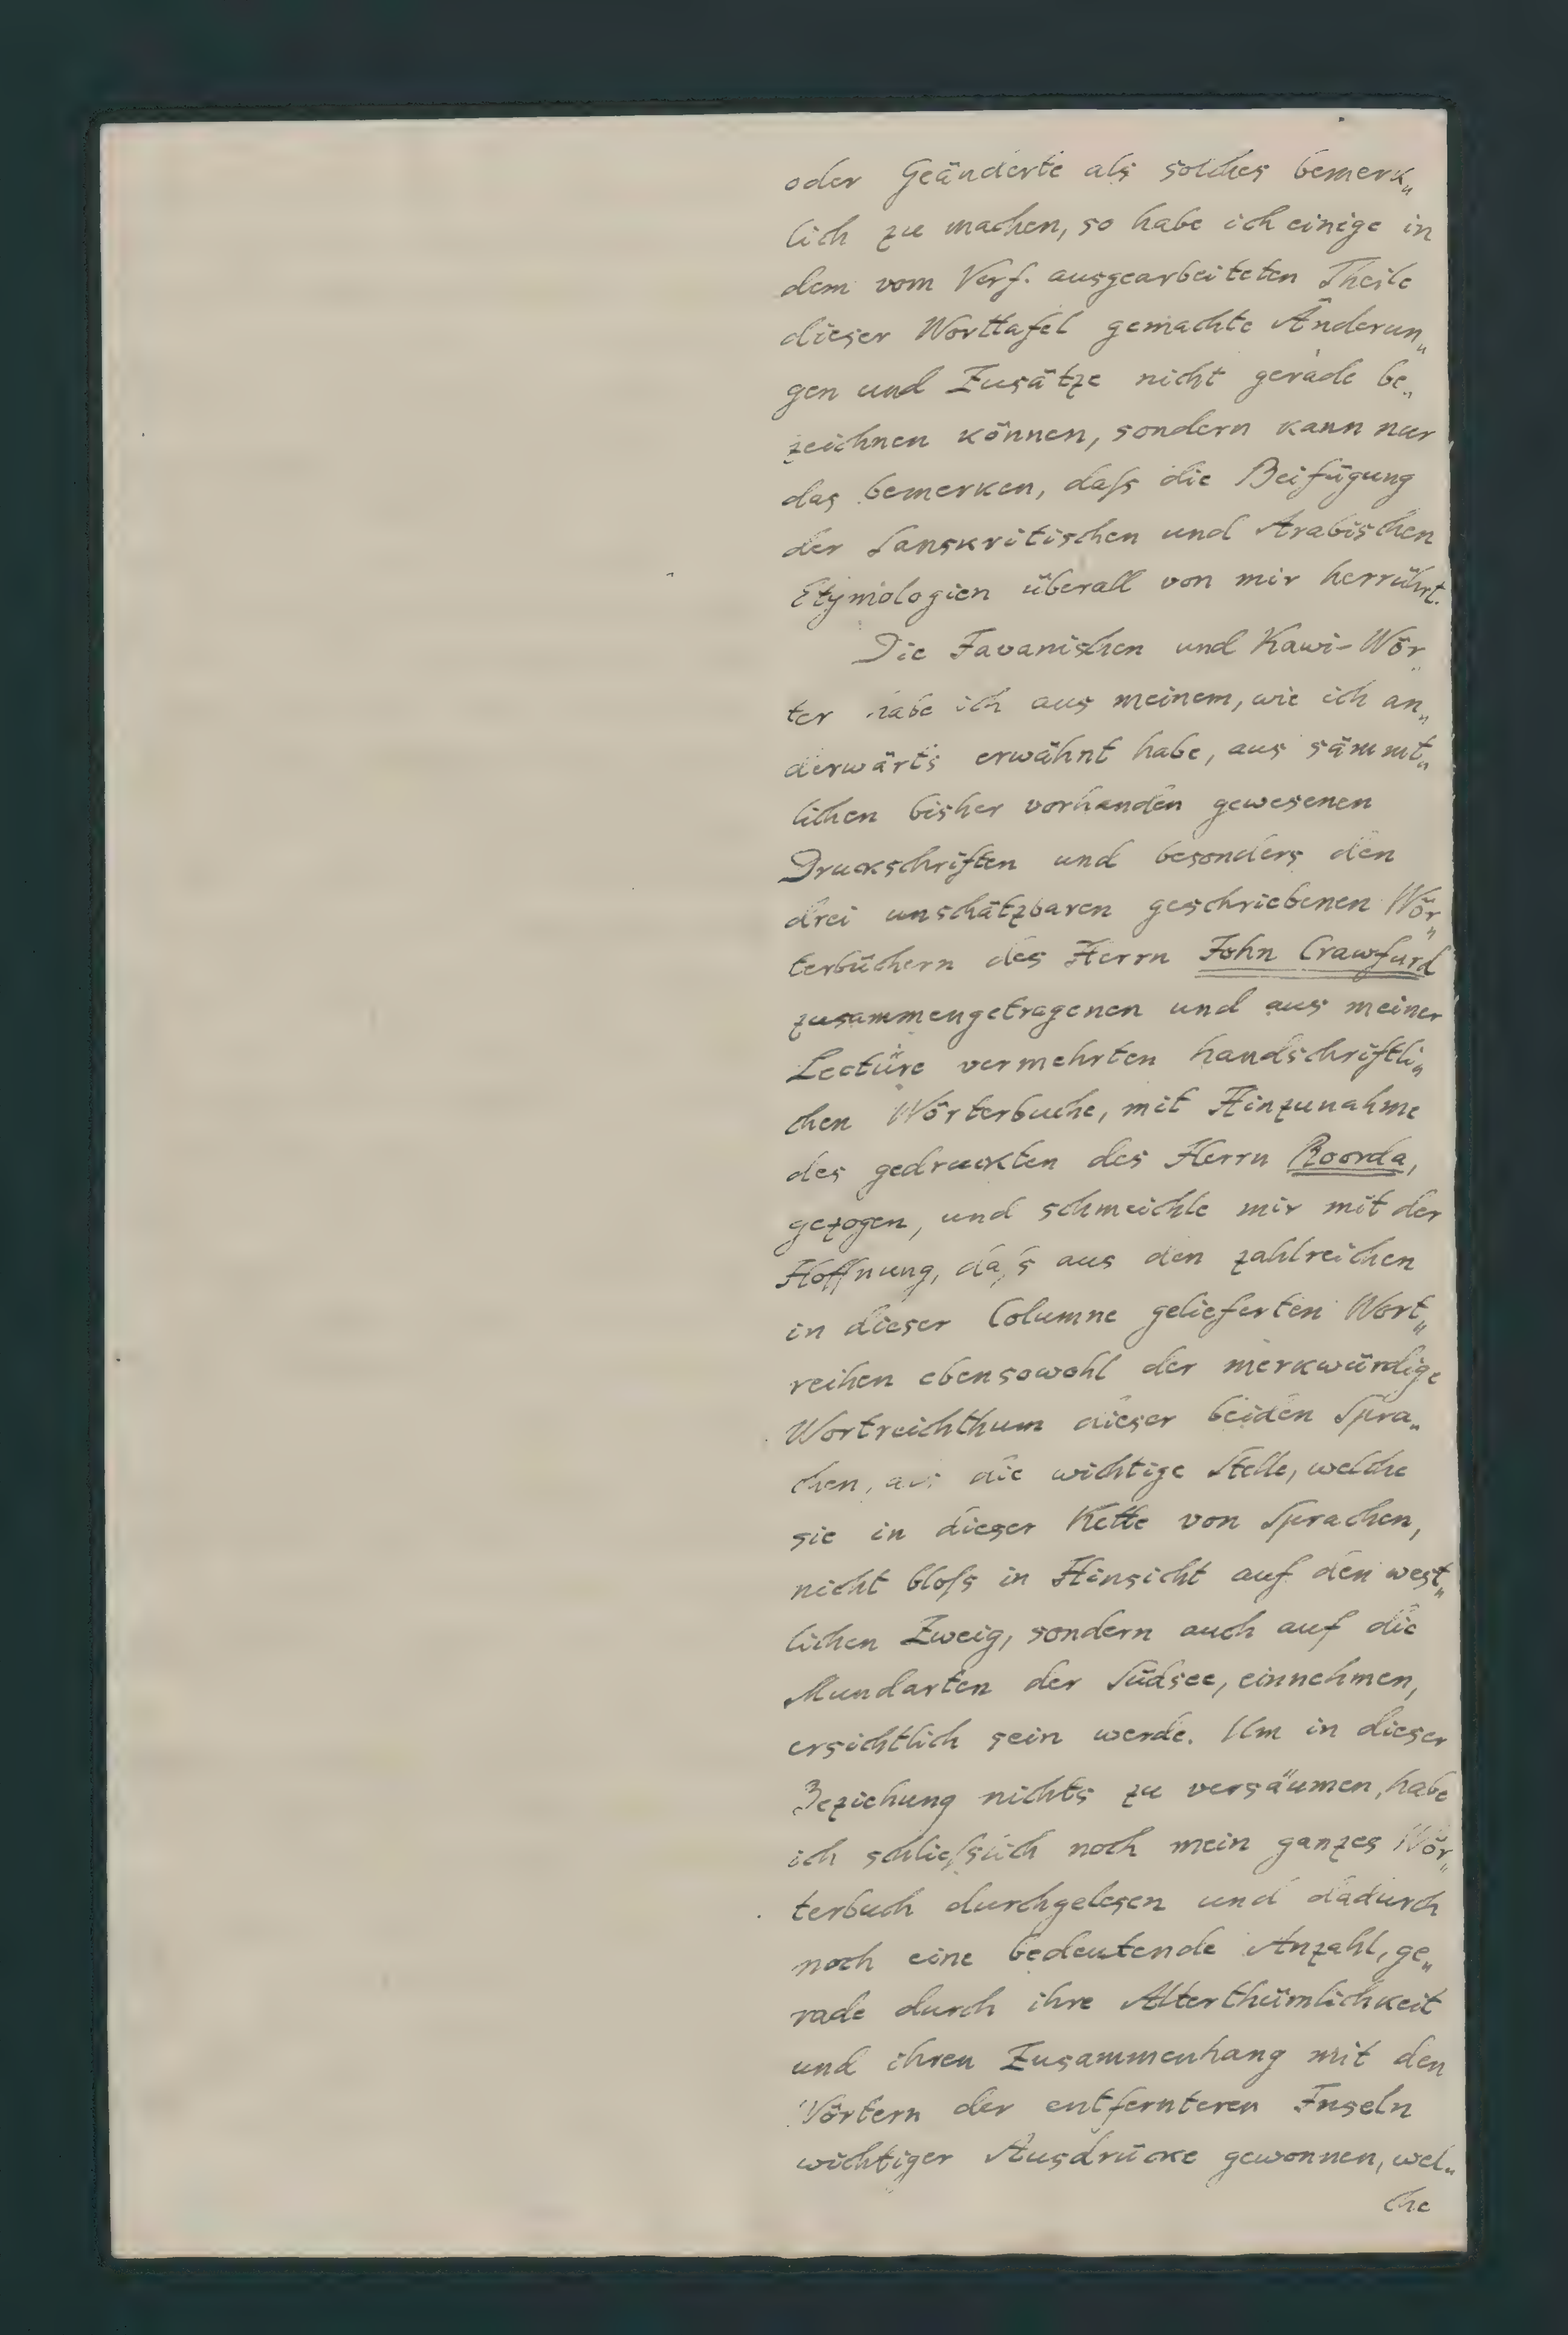 oder Geänderte als solches bemerk„
lich zu machen, so habe ich einige in
dem vom Verf. ausgearbeiteten Theile
dieser Worttafel gemachte Änderun„
gen und Zusätze nicht gerade be„
zeichnen können, sondern kann nur
das bemerken, daſs die Beifügung
der Sanskritischen und Arabischen
Etymologien überall von mir herrührt.
Die Javanischen und Kawi-Wör„
ter habe ich aus meinem, wie ich an„
derwärts erwähnt habe, aus sämmt„
lichen bisher vorhanden gewesenen
Druckschriften und besonders den
drei unschätzbaren geschriebenen Wör„
terbüchern des Herrn John Crawfurd
zusammengetragenen und aus meiner
Lectüre vermehrten handschriftli„
chen Wörterbuche, mit Hinzunahme
des gedruckten des Herrn Roorda,
gezogen, und schmeichle mir mit der
Hoffnung, daſs aus den zahlreichen
in dieser Columne gelieferten Wort„
reihen ebensowohl der merkwürdige
Wortreichthum dieser beiden Spra„
chen, als die wichtige Stelle, welche
sie in dieser Kette von Sprachen,
nicht bloſs in Hinsicht auf den west„
lichen Zweig, sondern auch auf die
Mundarten der Südsee, einnehmen,
ersichtlich sein werde. Um in dieser
Beziehung nichts zu versäumen, habe
ich schlieſslich noch mein ganzes Wör„
terbuch durchgelesen und dadurch
noch eine bedeutende Anzahl, ge„
rade durch ihre Alterthümlichkeit
und ihren Zusammenhang mit den
Wörtern der entfernteren Inseln
wichtiger Ausdrücke gewonnen, wel„
che